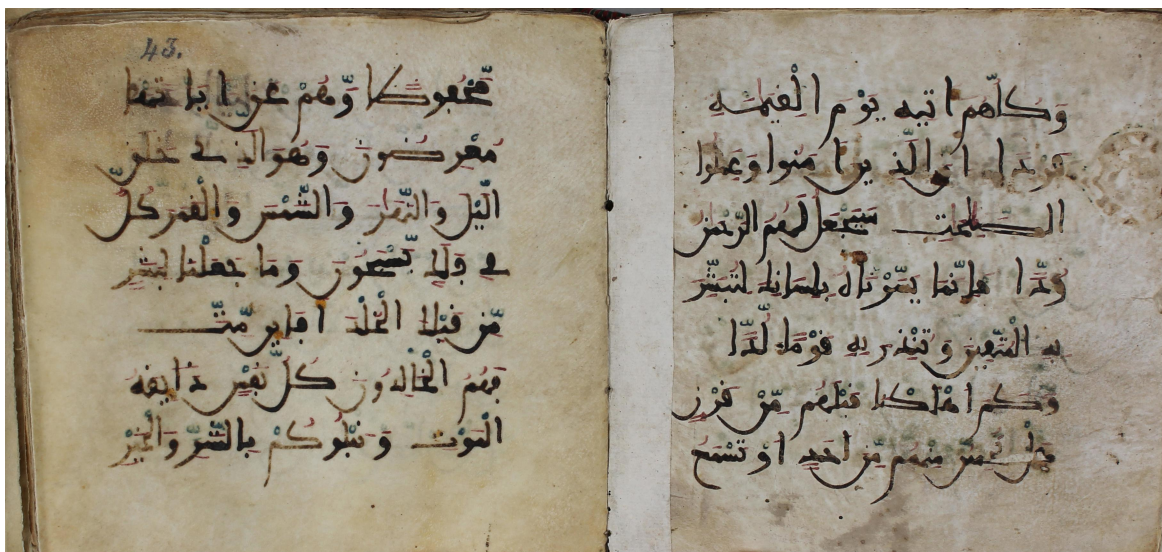 وَكُلُّهُمْ اتِيهِ يَوْمَ الْقِيَمَةِ
فَرْدًا اِنَّ الَّذِينَ امَنُوا وَعَمِلُوا
الصَّلِحَتِ سَيَجْعَلُ لَهُمُ الرَّحْمَنُ
وُدًّا فَاِنَّمَا يَسَّرْنَهُ بِلِسَانِكَ لِتُبَشِّرَ
بِهِ الْمُتَّقِينَ وَتُنْذِرَ بِهِ قَوْمًا لُّدًّا
وَكَمْ اَهْلَكْنَا قَبْلَهُم مِّن قَرْنٍ
هَلْ تُحِسُّ مِنْهُم مِّنَ اَحَدٍ اَوْ تَسْمَعُ
43.
مَّحْفُوظًا وَّهُمْ عَنَ ايَاتِهَا
مُعْرِضُونَ وَهُوَ الذِي خَلَقَ
الَّيْلَ وَالنَّهَارَ وَالشَّمْسَ وَالْقَمَرَ كُلٌّ
فِي فَلَكٍ يَّسْبَحُونَ وَمَا جَعَلْنَا لِبَشَرٍ
مِّن قَبْلِكَ الْخُلْدَ اَفَاِيْن مِّتَّ
فَهُمُ الْخَالِدُونَ كُلُّ نَفْسٍ ذَايِقَةُ
الْمَوْتِ وَنَبْلُوكُمْ بِالشَّرِّ وَالْخَيْرِ